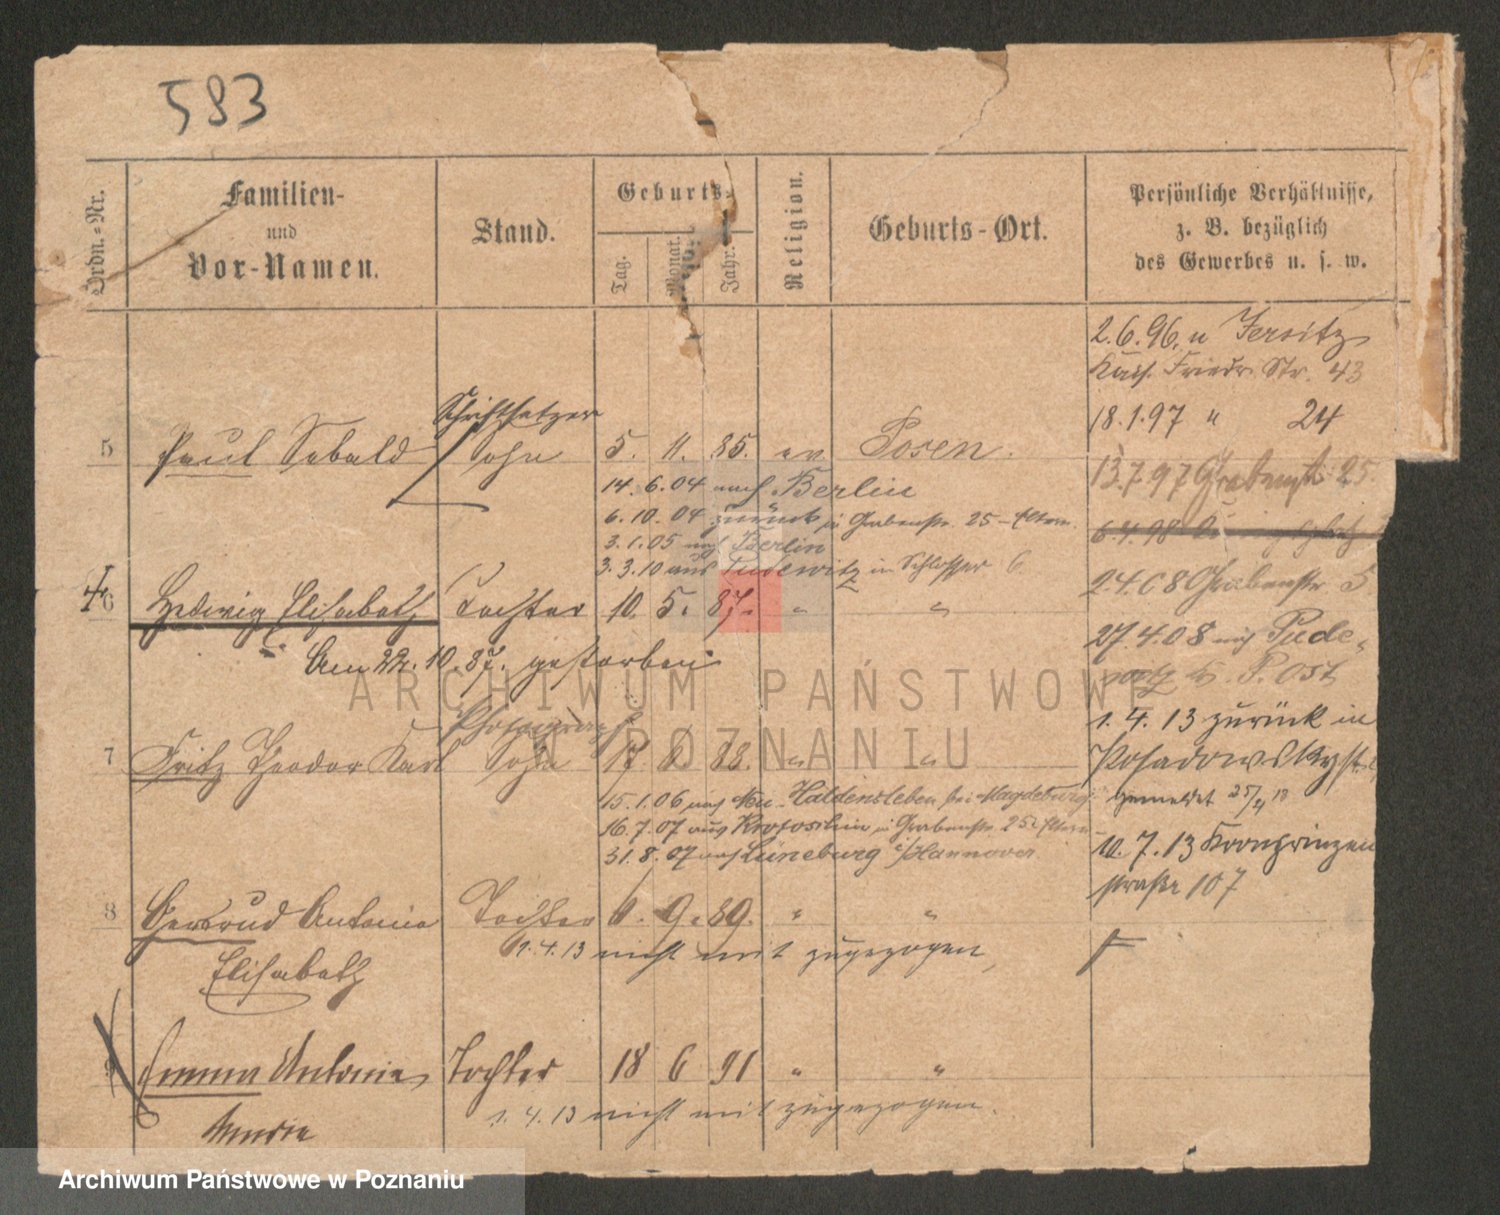 583
Ordn.-Nr.
Familien-
und
Vor-Namen.
Stand.
Geburts-
Tag.
Monat.
Jahr.
Religion.
Geburts-Ort.
Persönliche Verhältnisse,
z. B. bezüglich
des Gewerbes u. s. w.
2.6.96. n Jersitz
Kais. Friedr. Str. 43
18.1.97 " 24
13.7.97 Grabenstr. 25.
6.4.98
24.08 Grabenstr 5
27.4.08 nach Pude-
witz P. Ost
1.4.13 zurück in
Posadowskystr.
gemeldet 25/4 13
10.7.13 Kronprinzen
straße 107
Schriftsetzer
5 Paul Sebald Sohn 5. 11. 85. ev Posen.
14.6.04 nach Berlin
6.10.04 zurück in Grabenstr. 25 - Eltern.
3.1.05 nach Berlin
3.3.10 aus Pudewitz in Schlosser 6
6 Hedwig Elisabeth Tochter 10. 5. 87. " "
Am 22.10.87. gestorben
Photograph
7 Fritz Theodor Karl Sohn 17. 6 88. " "
15.1.06 nach Neu-Haldensleben bei Magdeburg
16.7.07 aus Krotoschin in Grabenstr. 25 Eltern
31.8.07 nach Lüneburg i/Hannover
8 Gertrud Antonie Tochter 6. 9. 89. " "
1.4.13 nicht mit zugezogen,
Elisabeth
9 Emma Antonie Tochter 18 6 91 " "
1.4.13 nicht mit zugezogen.
Maria
ARCHIWUM PAŃSTWOWE
W POZNANIU
Archiwum Państwowe w Poznaniu